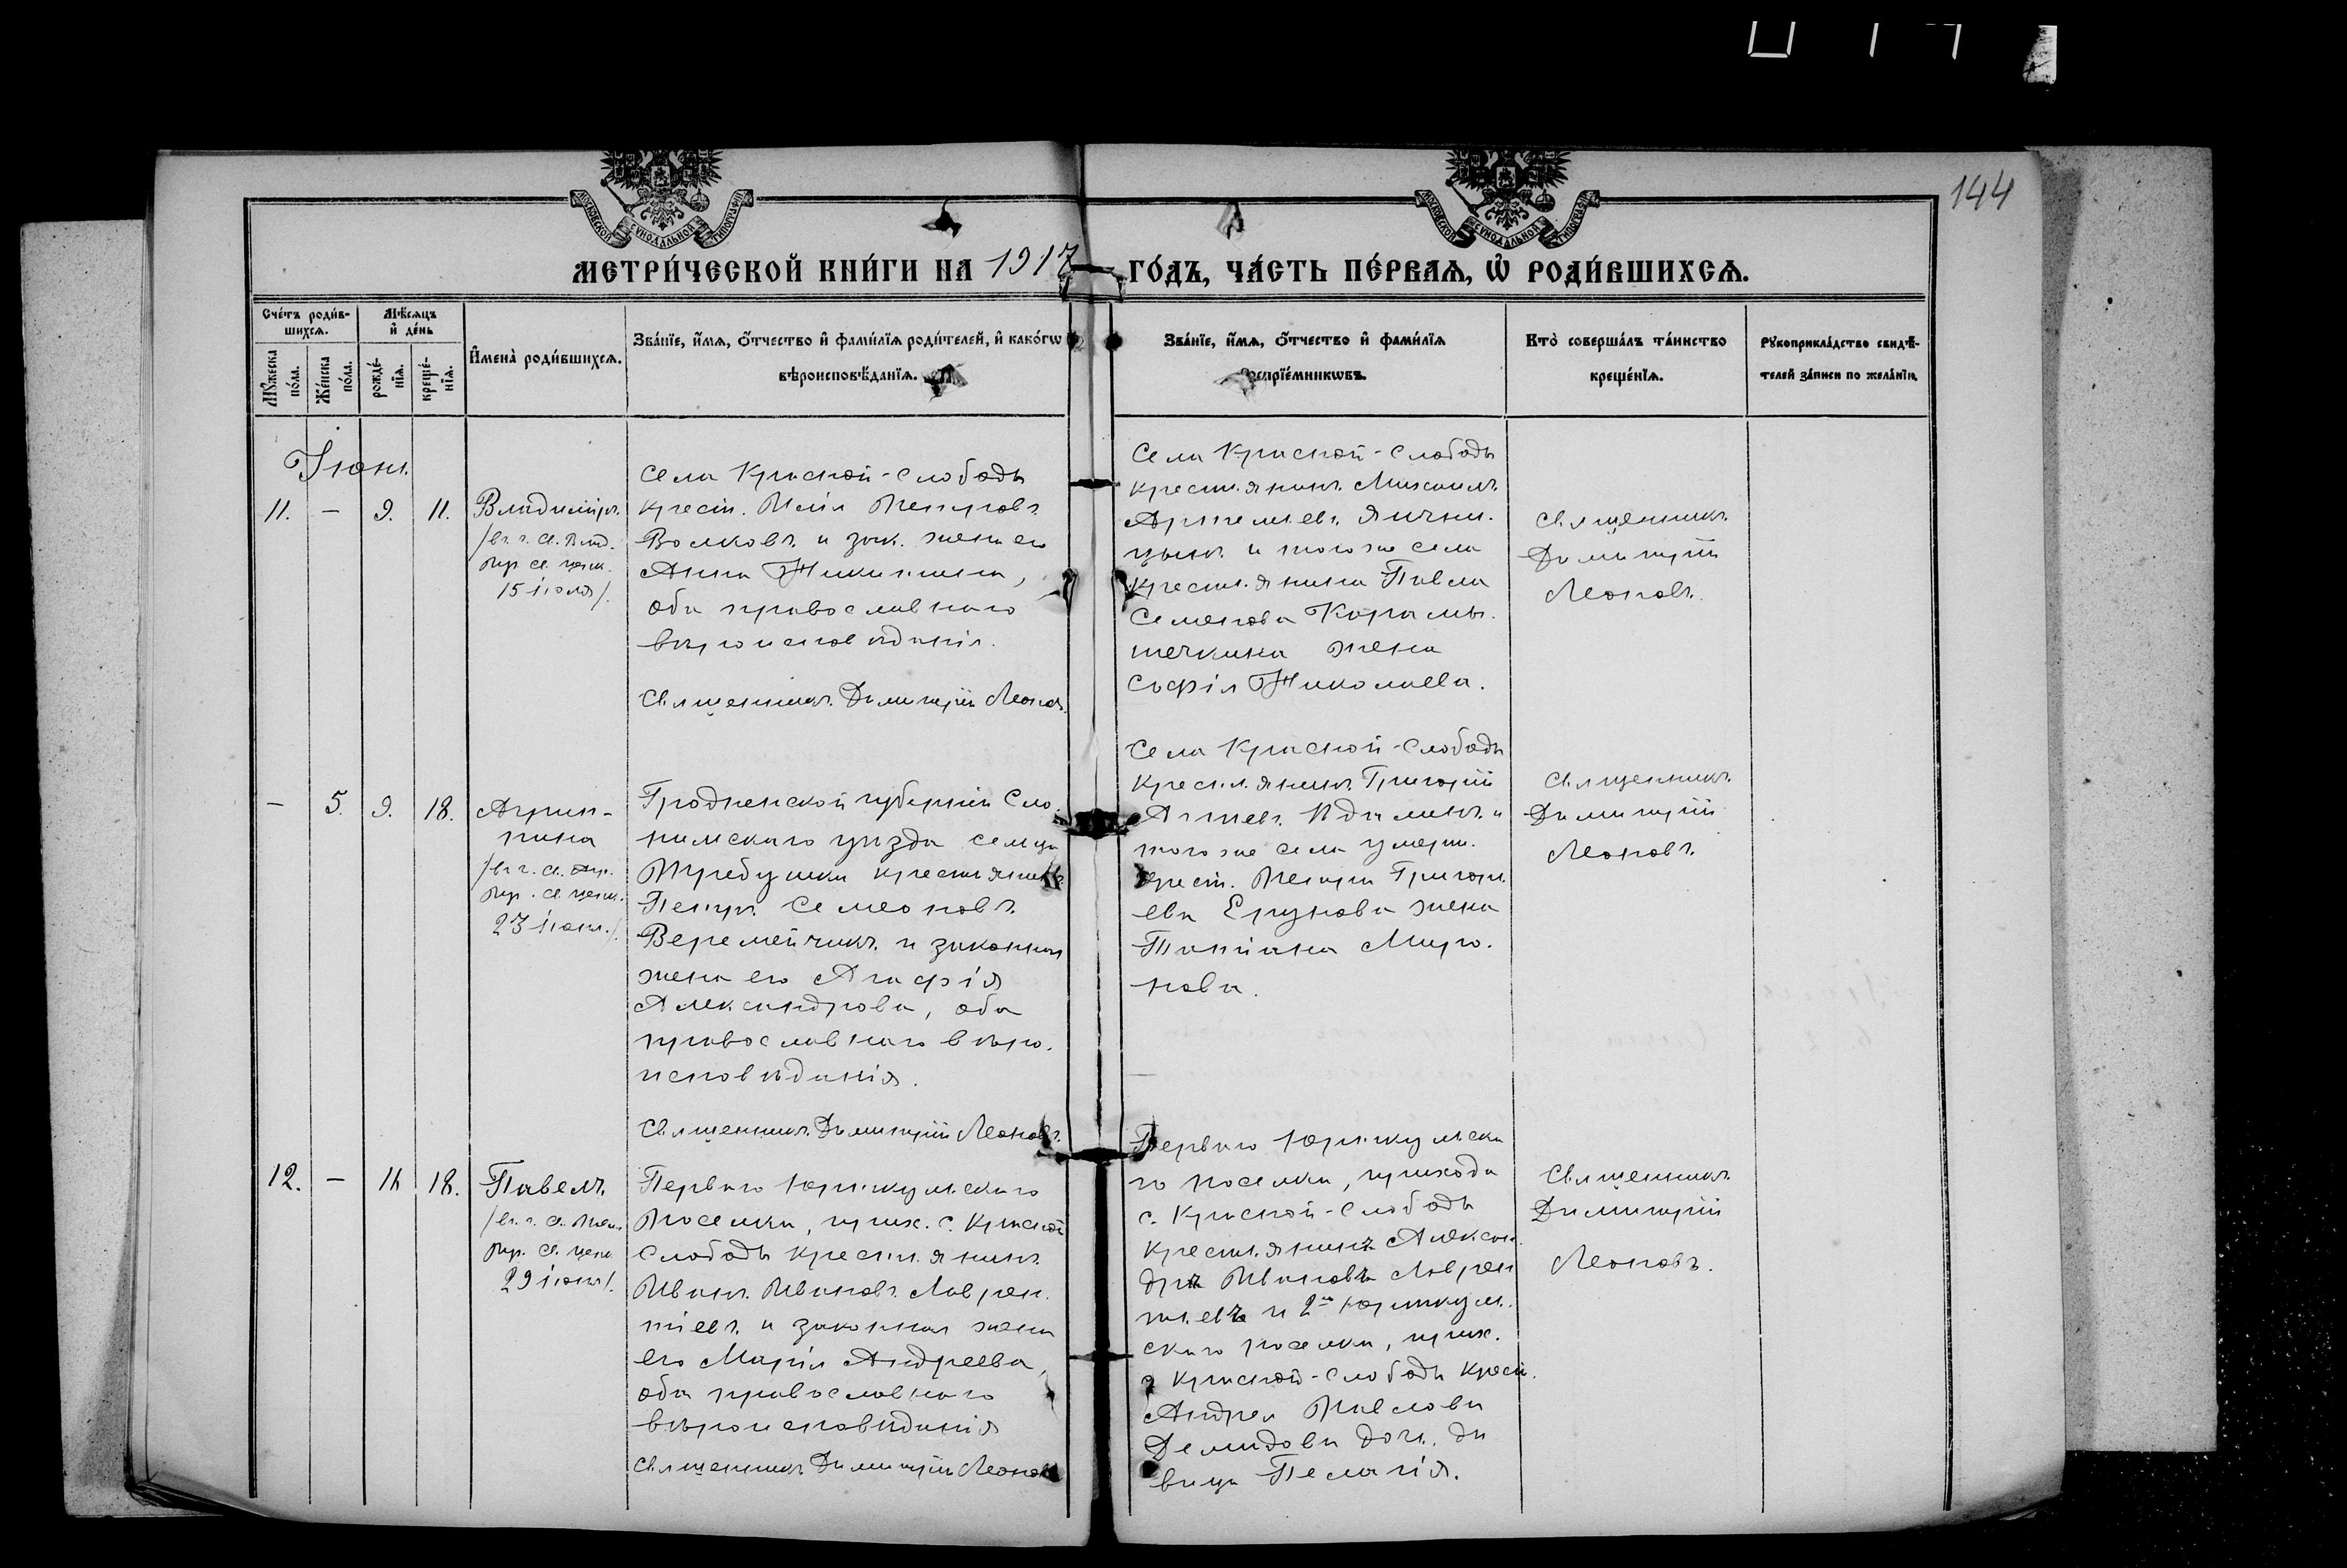 144
МОСКОВСКОЙ СѴНОДАЛЬНОЙ ТИПОГРАФІИ
МОСКОВСКОЙ СѴНОДАЛЬНОЙ ТИПОГРАФІИ
МЕТРИ́ЧЕСКОЙ КНИ́ГИ НА 1917
ГО́ДЪ, ЧА́СТЬ ПЕ́РВАѦ, Ѽ РОДИ́ВШИХСѦ.
Сче́тъ роди́в-
шихсѧ.
Мѣ́сѧцъ
и҆ де́нь
Мꙋ́жеска
по́ла.
Же́нска
по́ла.
рожде́-
нїѧ.
креще́-
нїѧ.
И҆мена̀ роди́вшихсѧ.
Зва́нїе, и҆́мѧ, ѻ҆́тчество и҆ фами́лїѧ роди́телей, и҆ како́гѡ
вѣроисповѣ́данїѧ.
Зва́нїе, и҆́мѧ, ѻ҆́тчество и҆ фами́лїѧ
воспрїе́мникѡвъ.
Кто̀ соверша́лъ та́инство
креще́нїѧ.
Рꙋкоприкла́дство свидѣ́-
телей за́писи по жела́нїю.
Іюнь.
11.
—
9.
11.
Владиміръ.
/въ ч. св. Влад.
пр. св. церк.
15 іюля/.
Села Красной-Слободы
крест. Илія Петровъ
Волковъ и зак. жена его
Анна Никитина,
оба православнаго
вѣроисповѣданія.
Священникъ Димитрій Леоновъ.
Села Красной-Слободы
крестьянинъ Михаилъ
Артемьевъ Яични-
цынъ и того же села
крестьянина Павла
Семенова Карамы-
шечкина жена
Софія Николаева.
Священникъ
Димитрій
Леоновъ.
—
5.
9.
18.
Агрип-
пина
пр. св. церк.
23 іюня/.
Гродненской губерніи Сло-
нимскаго уѣзда сельца
крестьянинъ
Петръ Семеоновъ
Веремейчикъ и законная
жена его Агафія
Александрова, оба
православнаго вѣро-
исповѣданія.
Священникъ Димитрій Леоновъ.
Села Красной-Слободы
крестьянинъ Григорій
и
того же села умерш.
крест. Петра Григорь
ева Ерунова жена
Татіана Миро-
нова.
Священникъ
Димитрій
Леоновъ.
12.
—
16
18.
Павелъ.
пр. св. церк.
29 іюня/.
Перваго Юрткульскаго
поселка, прих. с. Красной
Слободы крестьянинъ
Иванъ Ивановъ Лаврен-
тіевъ и законная жена
его Марія Андреева,
оба православнаго
вѣроисповѣданія
Священникъ Димитрій Леоновъ
Перваго Юрткульска
го поселка, прихода
с. Красной-Слободы
крестьянинъ Алексан-
дръ Ивановъ Лаврен
тьевъ и 2го Юрткуль-
скаго поселка, прих.
с Красной-Слободы крест.
Андрея Павлова
Демидова дочь дѣ
вица Пелагія.
Священникъ
Димитрій
Леоновъ.